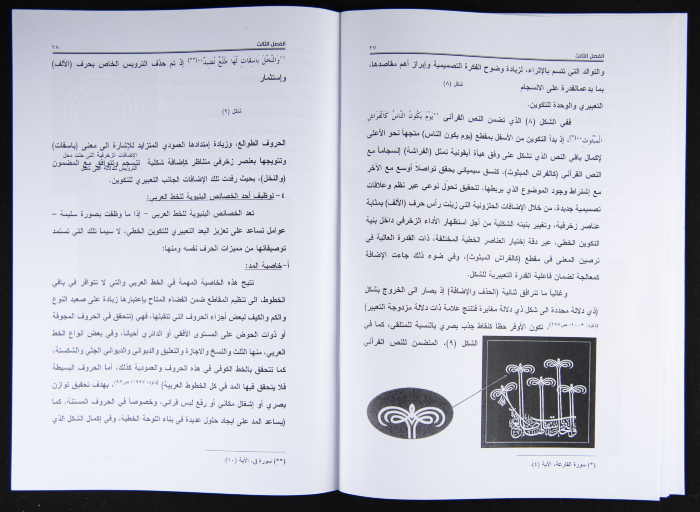 الفصل الثالث
٢٧
والتوالد التي تتسم بالإثراء، لزيادة وضوح الفكرة التصميمية وإبراز أهم مقاصدها،
بما يدعمالقدرة على الانسجام
شكل (٨)
التعبيري والوحدة للتكوين.
ففي الشكل (٨) الذي تضمن النص القرآني ''يَوْمَ يَكُونُ النَّاسُ كَالْفَرَاشِ
الْمَبْثُوثِ''(*)، إذ بدأ التكوين من الأسفل بمقطع (يوم يكون الناس) متجهاً نحو الأعلى
لإكمال باقي النص الذي تشكل على وفق هيأة أيقونية تمثل (الفراشة) إنسجاماً مع
النص القرآني (كالفراش المبثوث)، كنسق سيميائي يحقق تواصلاً أوسع مع الآخر
مع إشتراط وجود الموضوع الذي يربطها، لتحقيق تحول نوعي عبر نظم وعلاقات
تصميمية جديدة، من خلال الإضافات الحلزونية التي زينت رأس حرف (الألف) بمثابة
عناصر زخرفية، وتغيير بنيته الشكلية من أجل استظهار الأداء الزخرفي داخل بنية
التكوين الخطي، عبر دقة إختيار العناصر الخطية المختلفة، ذات القدرة العالية في
ترصين المعنى في مقطع (كالفراش المبثوث)، وفي ضوء ذلك جاءت الإضافة
كمعالجة لضمان فاعلية القدرة التعبيرية للشكل.
وغالبا ما تترافق ثنائية (الحذف والإضافة) إذ يصار الى الخروج بشكل
(ذي دلالة محددة الى شكل ذي دلالة مغايرة فتنتج علامة ذات دلالة مزدوجة التعبير)
تكون الأوفر حظا كنقاط جذب بصري بالنسبة للمتلقي، كما في
الشكل (٩)، المتضمن للنص القرآني
(*) سورة القارعة، الآية (٤).
الفصل الثالث
٢٨
''وَالنَّخْلَ بَاسِقَاتٍ لَّهَا طَلْعٌ نَّضِيدٌ''(**) إذ تم حذف الترويس الخاص بحرف (الألف)
وإستثمار
شكل (٩)
الحروف الطوالع، وزيادة إمتدادها العمودي المتزايد للإشارة الى معنى (باسقات)
الإضافات الزخرفية التي حلت محل
وتتويجها بعنصر زخرفي متناظر كإضافة شكلية تنسجم وتتوافق مع المضمون
(والنخل)، بحيث رفدت تلك الإضافات الجانب التعبيري للتكوين.
٤- توظيف أحد الخصائص البنيوية للخط العربي:
تعد الخصائص البنيوية للخط العربي – إذا ما وظفت بصورة سليمة –
عوامل تساعد على تعزيز البعد التعبيري للتكوين الخطي، لا سيما تلك التي تستمد
توصيفاتها من مميزات الحرف نفسه ومنها:
أ-خاصية المد:
تتيح هذه الخاصية المهمة في الخط العربي والتي لا تتوافر في باقي
الخطوط، الى تنظيم المقاطع ضمن الفضاء المتاح بإعتبارها زيادة على صعيد النوع
والكم والكيف لبعض أجزاء الحروف التي تتقبلها، فهي (تتحقق في الحروف المجوفة
أو ذوات الحوض على المستوى الأفقي أو الدائري أحيانا، وفي بعض انواع الخط
العربي، منها الثلث والنسخ والاجازة والتعليق والديواني والديواني الجلي والشكستة،
كما تتحقق بالخط الكوفي في هذه الحروف والعمودية كذلك، أما الحروف البسيطة
فلا يتحقق فيها المد في كل الخطوط العربية)، بهدف تحقيق توازن
بصري أو إشغال مكاني أو رفع لبس قرائي، وخصوصا في الحروف المسننة، كما
(يساعد المد على ايجاد حلول عديدة في بناء اللوحة الخطية، وفي إكمال الشكل الذي
(**) سورة ق، الآية (١٠).